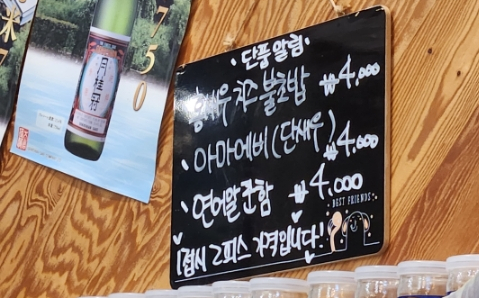 단풍알림
홍새우 치즈 불초밥 ₩4,000
아마에비(단새우) ₩4,000
연어알 군함 ₩4,000
BEST FRIENDS
1접시 2피스 가격입니다!
月桂冠
750
米